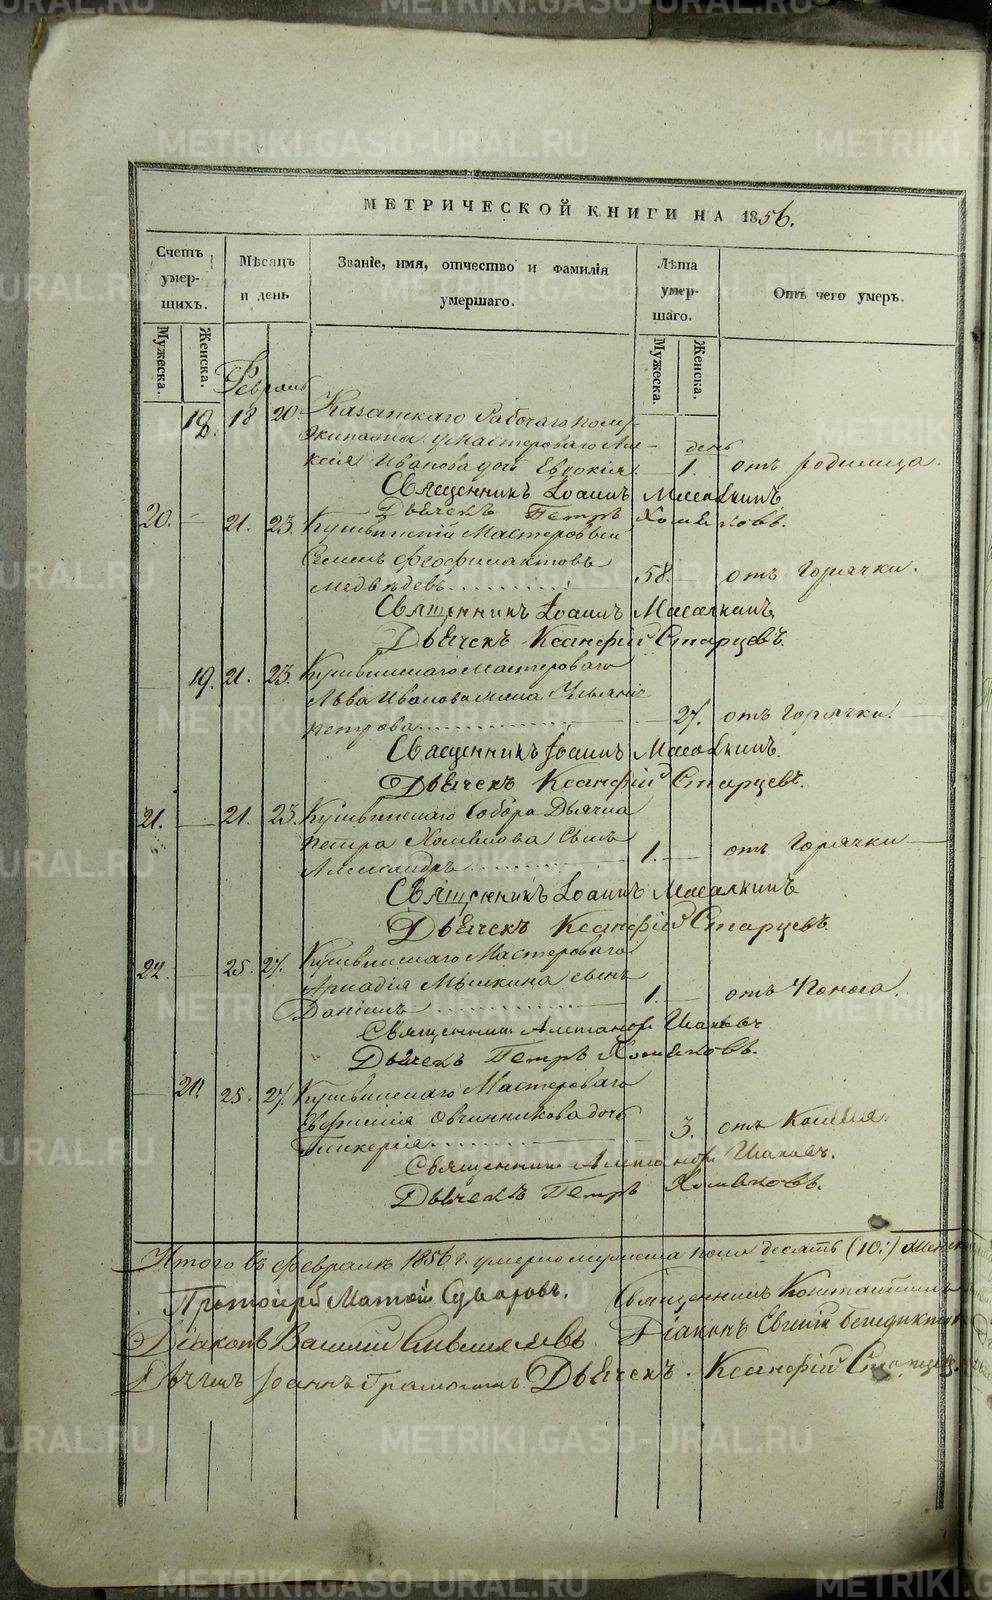 METRIKI.GASO-URAL.RU
МЕТРИЧЕСКОЙ КНИГИ НА 1856.
Счетъ умершихъ.
Мѣсяцъ и день
Званіе, имя, отчество и фамилія умершаго.
Лѣта умершаго.
Отъ чего умеръ.
Мужеска.
Женска.
Мужеска.
Женска.
Февраль
18. 18 20. Казатскаго Рабочаго
экипажа Мастероваго Але- день
ксія Иванова дочь Евдокія — 1. отъ родимца.
Священникъ Іоаннъ Масалкинъ
Дьячекъ Петръ Хомяковъ.
20. — 21. 23. Кушвинскій Мастеровый
Семенъ Феофилактовъ
Медвѣдевъ 58. — отъ Горячки.
Священникъ Іоаннъ Масалкинъ
Дьячекъ Ксанфій Старцевъ.
— 19. 21. 23. Кушвинскаго Мастероваго
Льва Иванова жена
Петрова — 27. отъ Горячки.
Священникъ Іоаннъ Масалкинъ.
Дьячекъ Ксанфій Старцевъ.
21. — 21. 23. Кушвинскаго Собора Дьячка
Петра Хомякова сынъ
Александръ 1. — отъ Горячки
Священникъ Іоаннъ Масалкинъ
Дьячекъ Ксанфій Старцевъ.
22. — 25. 27. Кушвинскаго Мастероваго
Аркадія Мѣлкина сынъ
Даніилъ 1. — отъ Поноса.
Священникъ Александръ
Дьячекъ Петръ Хомяковъ.
— 20. 25. 27. Кушвинскаго Мастероваго
Евфимія Овчинникова дочь
Гликерія 3. отъ Кашля.
Священникъ Александръ
Дьячекъ Петръ Хомяковъ.
Итого въ февралѣ 1856 г. умерло мужеска пола десять (10.) женск
Протоіерей Матѳій Суворовъ. Священникъ Константинъ
Діаконъ Василій Діаконъ Евгеній Бенедиктов
Дьячекъ Іоаннъ Дьячекъ Ксанфій Старцевъ.